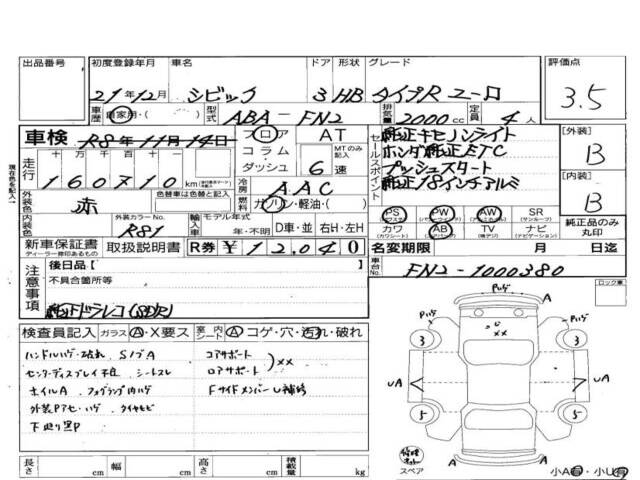 出品番号 初度登録年月 車名 ドア 形状 グレード 評価点
21年12月 シビック 3 HB タイプR ユーロ 3.5
車歴 自家用・( ) 型式 ABA-FN2 排気量 2000cc 定員 4人
車検 R8年11月14日 フロア AT
コラム MTのみ記入
ダッシュ 6速
走行 十万 万 千 百 十 一
160710 km
冷房 AAC
外装色 赤 色替車は元色記入 燃料 ガソリン・軽油・( )
内装色 外装カラーNo. R81 輸入車 モデル年式 年・不明 D車・並 右H・左H
セールスポイント 純正キセノンライト
ホンダ純正ETC
プッシュスタート
純正18インチアルミ
[外装] B
[内装] B
PS PW AW SR (サンルーフ)
カワ AB TV ナビ
純正品のみ丸印
新車保証書 取扱説明書 R券 ¥12,040 名変期限 月 日迄
ディーラー捺印あるもの
車台No. FN2-1000380
注意事項 後日品【
不具合箇所等
純正ドラレコ(SDR)
ロック車
検査員記入 ガラス A・X要ス 室内シート A コゲ・穴・汚れ・破れ
ハンドルハゲ・破れ SノブA コアサポート
センターディスプレイ不位 シートスレ ロアサポート )××
ホイルA フォグランプ内ハゲ Fサイドメンバー U補修
外装PアセハゲL タイヤヒビ
下廻り黒P
Pハゲ
A A
××
Pハゲ Pハゲ
3 3
UA A A UA
5 5
A A
スペア
小A・小U
長さ cm 幅 cm 高さ cm 積載量 kg
現在色を記入